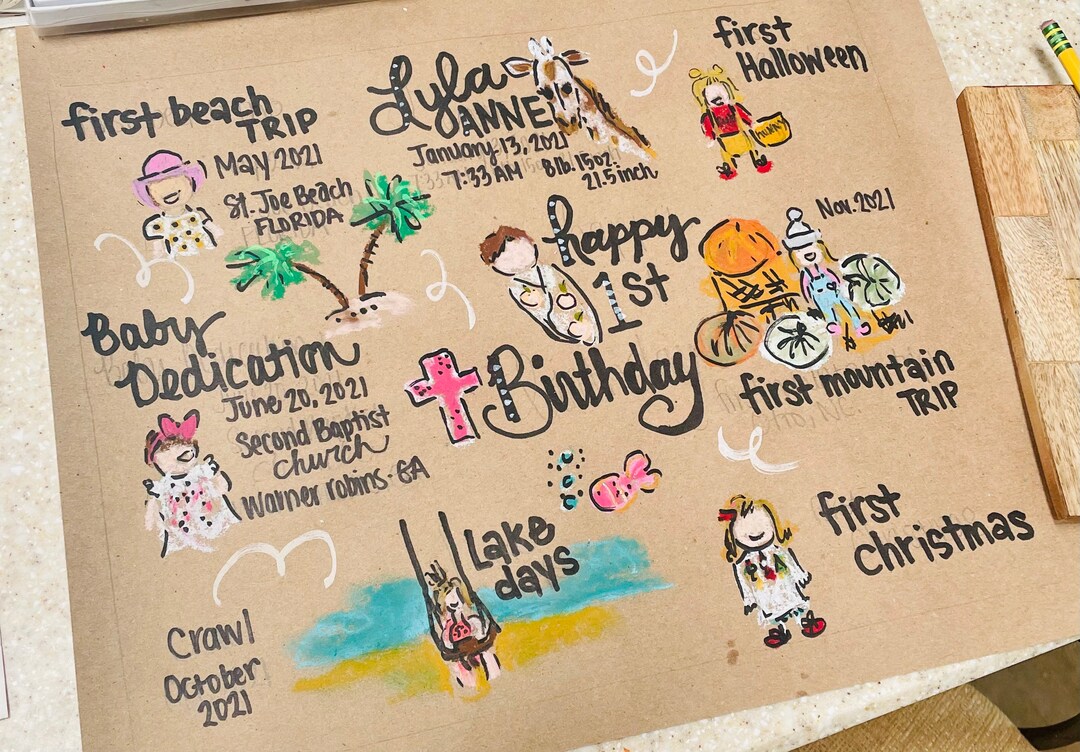 first beach
TRIP
May 2021
St. Joe Beach
FLORIDA
Lyla
ANNE
January 13, 2021
7:33 AM 8lb. 15oz.
21.5 inch
first
Halloween
HUNNY
happy
1st
Birthday
Nov. 2021
first mountain
TRIP
Baby
Dedication
June 20, 2021
Second Baptist
church
Warner robins · GA
Lake
days
first
christmas
Crawl
October
2021